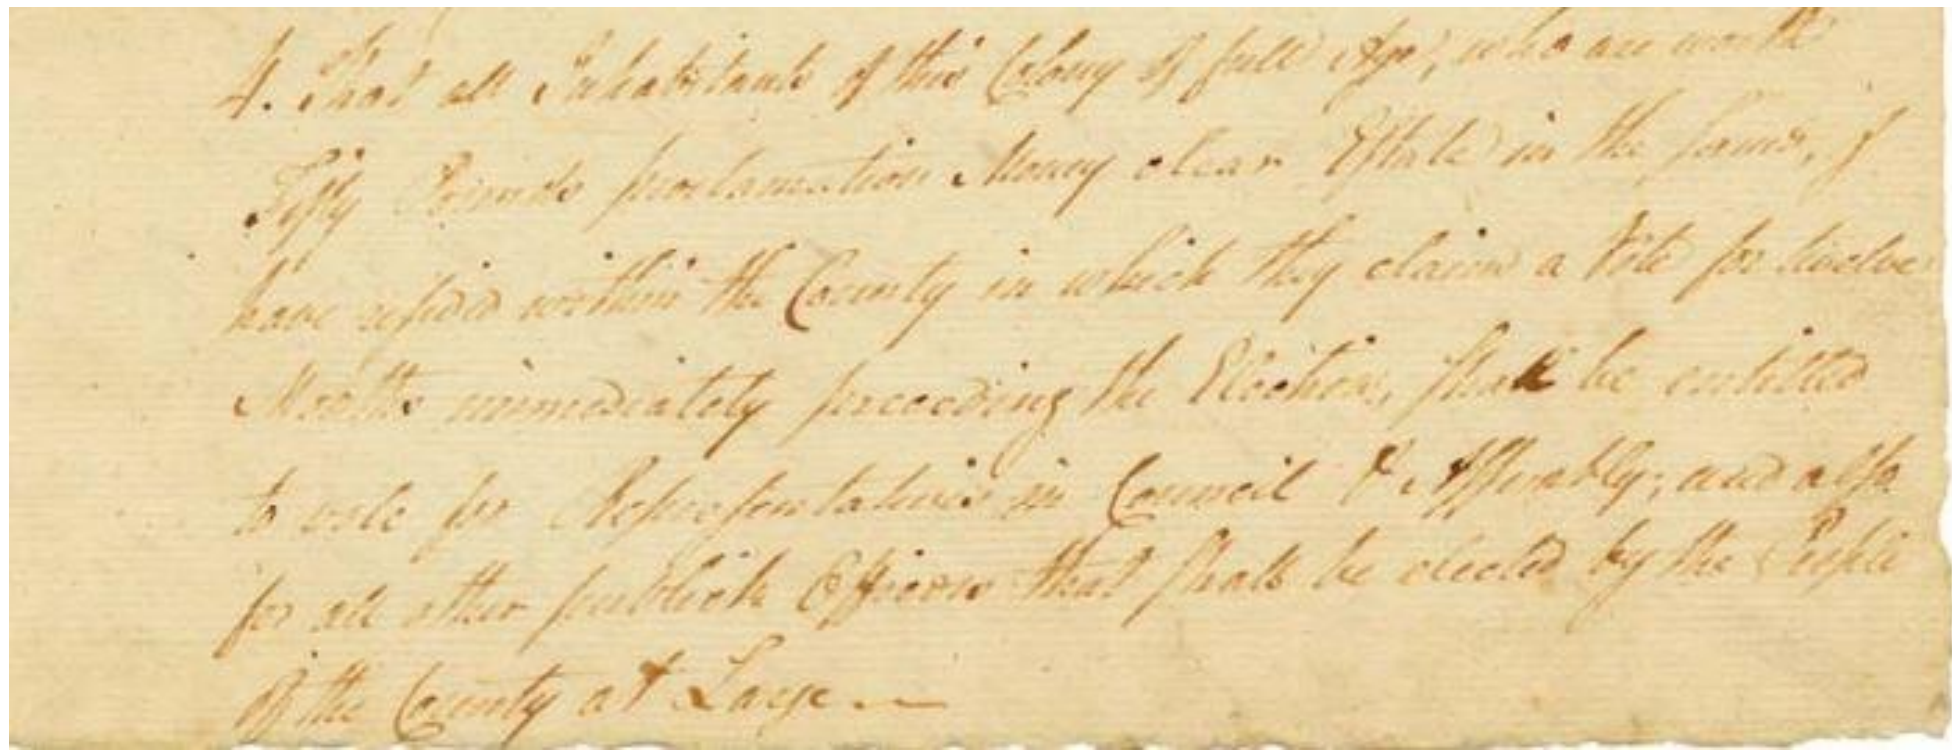 4. That all Inhabitants of this Colony of full Age, who are worth
Fifty Pounds proclamation Money clear Estate in the same, &
have resided within the County in which they claim a Vote for twelve
Months immediately preceeding the Election, shall be entitled
to vote for Representatives in Council & Assembly; and also
for all other publick Officers that shall be elected by the People
of the County at Large —